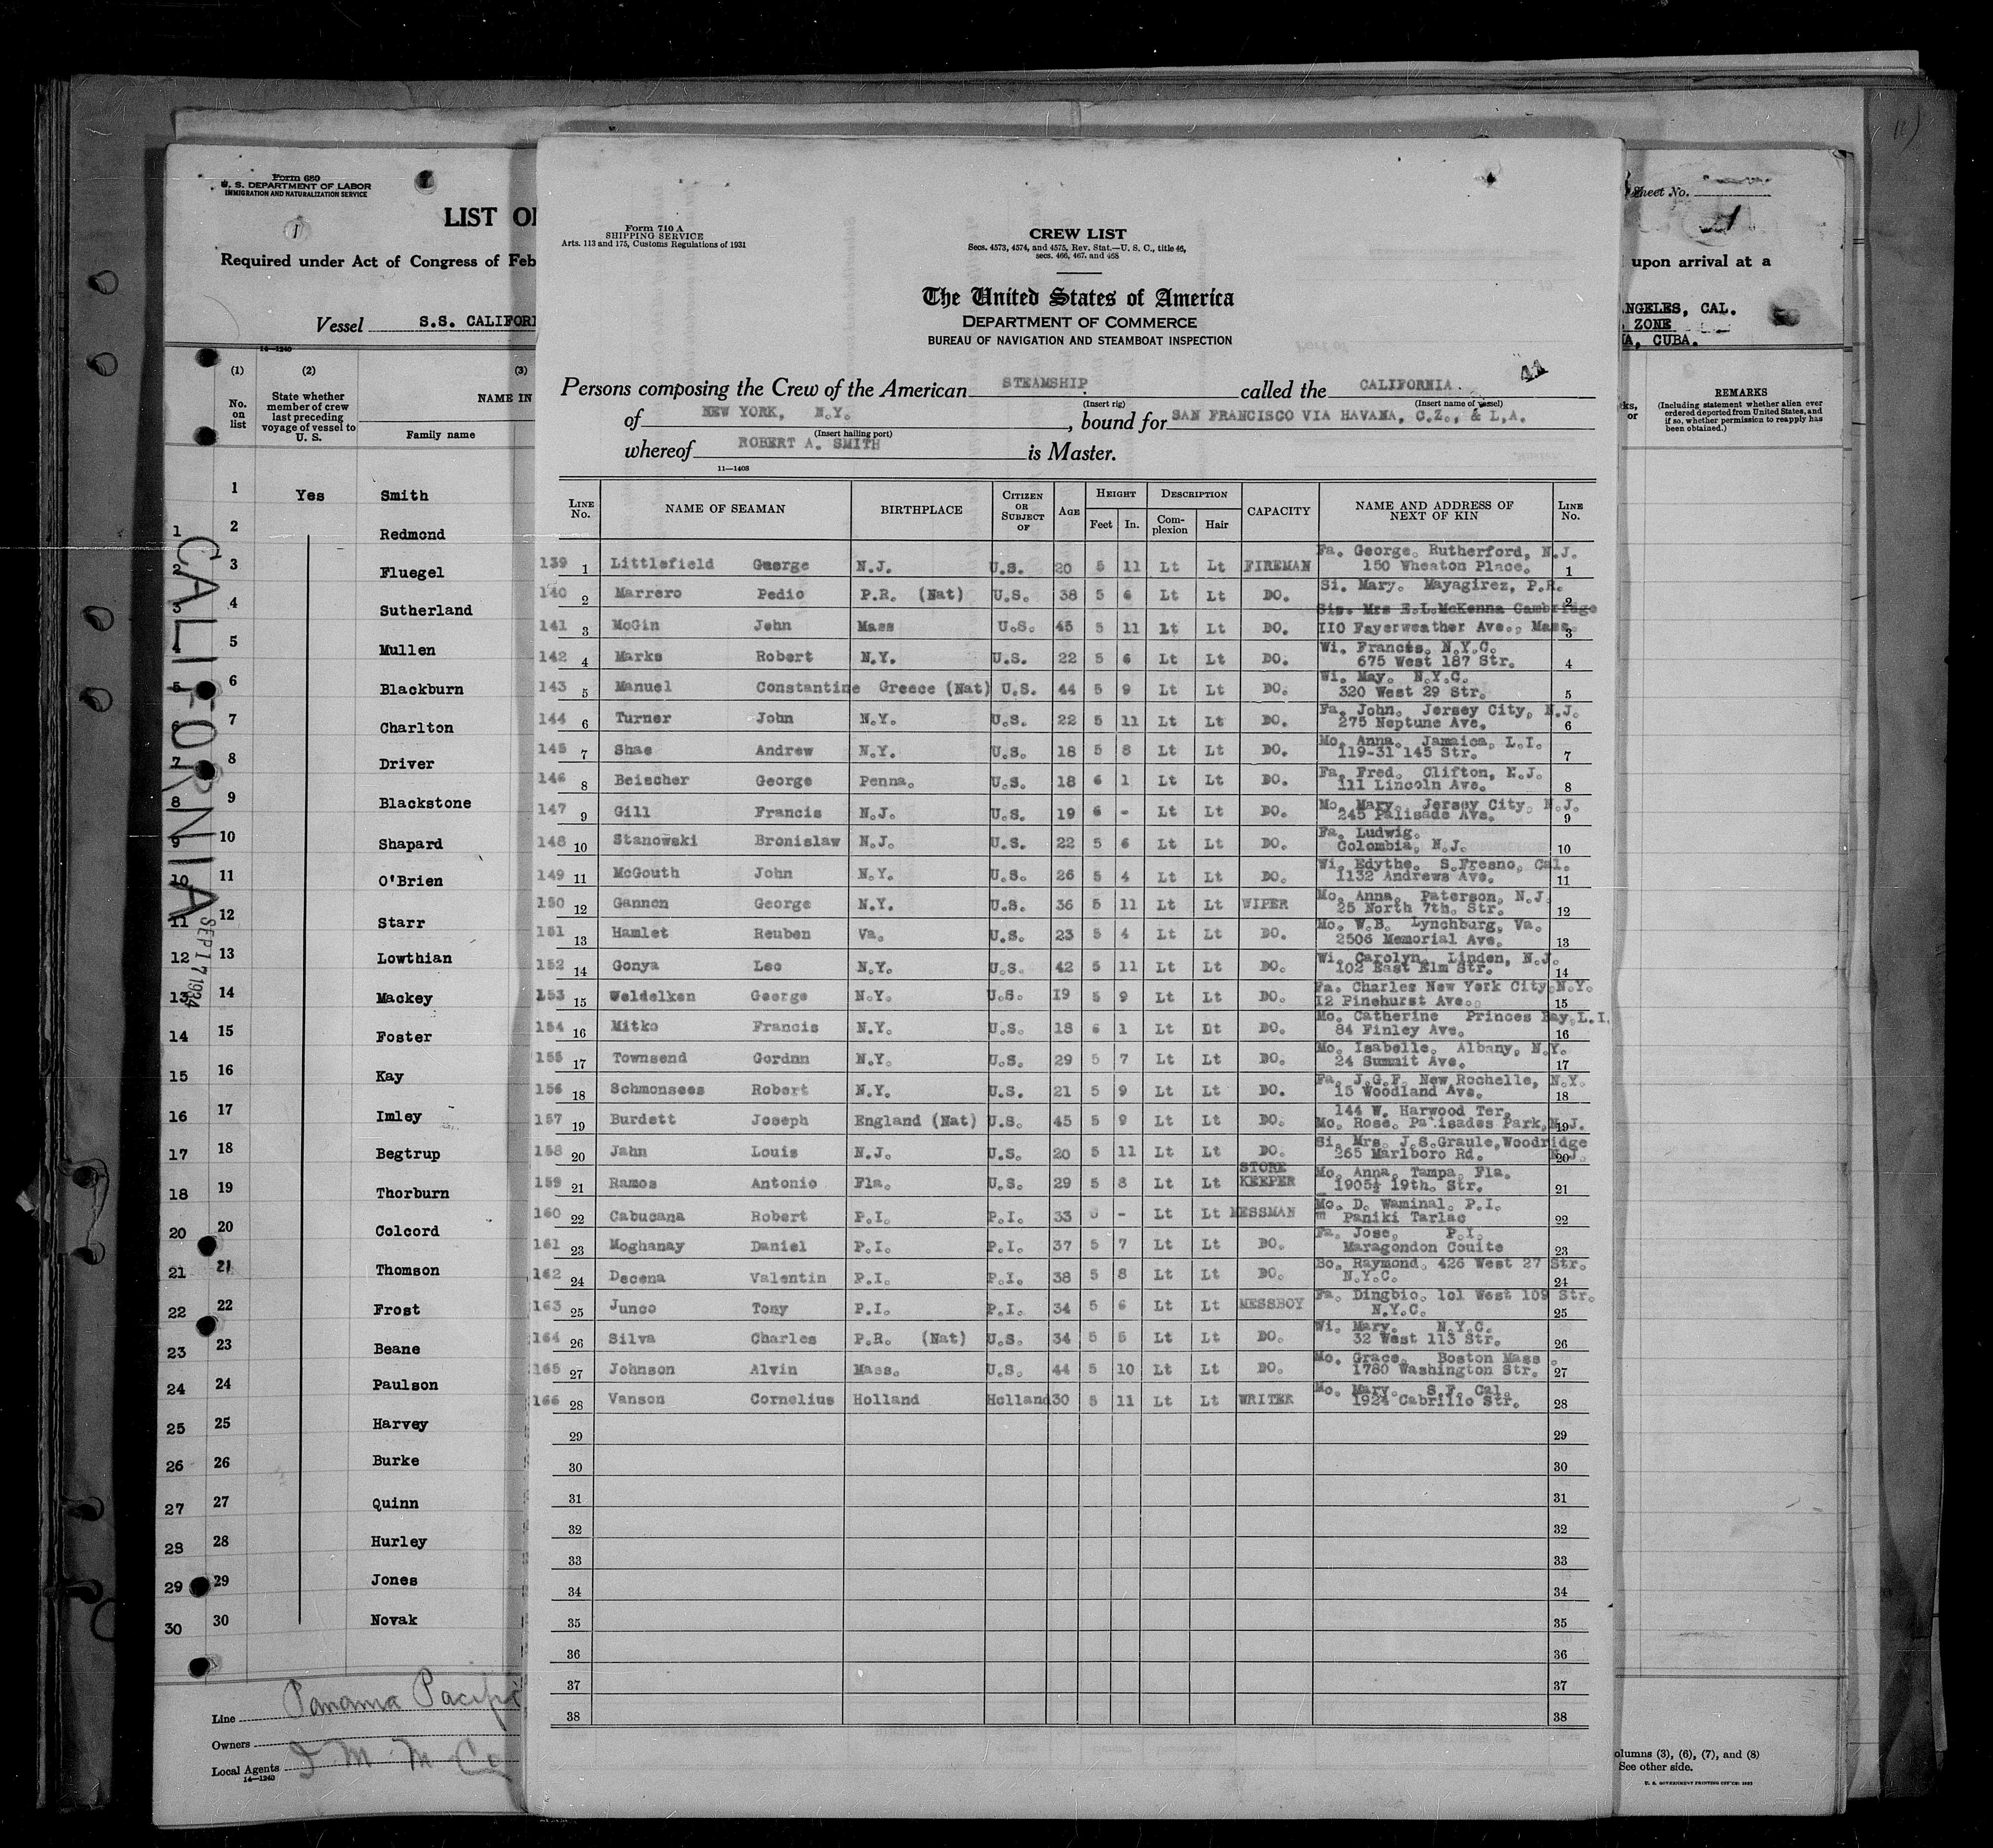 Form 680
U. S. DEPARTMENT OF LABOR
IMMIGRATION AND NATURALIZATION SERVICE
1
LIST O
Required under Act of Congress of Feb
Vessel S.S. CALIFOR
14—1240
(1) (2) (3)
No. on list
State whether member of crew last preceding voyage of vessel to U. S.
NAME IN
Family name
1 Yes Smith
1 2 Redmond
2 3 Fluegel
3 4 Sutherland
4 5 Mullen
5 6 Blackburn
6 7 Charlton
7 8 Driver
8 9 Blackstone
9 10 Shapard
10 11 O'Brien
11 12 Starr
12 13 Lowthian
13 14 Mackey
14 15 Foster
15 16 Kay
16 17 Imley
17 18 Begtrup
18 19 Thorburn
20 20 Colcord
21 21 Thomson
22 22 Frost
23 23 Beane
24 24 Paulson
25 25 Harvey
26 26 Burke
27 27 Quinn
28 28 Hurley
29 29 Jones
30 30 Novak
CALIFORNIA
SEP 17 1934
Line Panama Pacific
Owners
Local Agents I M M Co
14—1240
Form 710 A
SHIPPING SERVICE
Arts. 113 and 175, Customs Regulations of 1931
CREW LIST
Secs. 4573, 4574, and 4575, Rev. Stat.—U. S. C., title 46,
secs. 466, 467, and 468
The United States of America
DEPARTMENT OF COMMERCE
BUREAU OF NAVIGATION AND STEAMBOAT INSPECTION
Persons composing the Crew of the American STEAMSHIP called the CALIFORNIA.
(Insert rig) (Insert name of vessel)
of NEW YORK, N.Y. , bound for SAN FRANCISCO VIA HAVANA, C.Z., & L,A.
(Insert hailing port)
whereof ROBERT A. SMITH is Master.
11—1408
LINE No. NAME OF SEAMAN BIRTHPLACE CITIZEN OR SUBJECT OF AGE HEIGHT Feet In. DESCRIPTION Complexion Hair CAPACITY NAME AND ADDRESS OF NEXT OF KIN LINE No.
139 1 Littlefield George N.J. U.S. 20 5 11 Lt Lt FIREMAN Fa. George. Rutherford, N.J. 150 Wheaton Place. 1
140 2 Marrero Pedio P.R. (Nat) U.S. 38 5 6 Lt Lt DO. Si. Mary. Mayagirez, P.R. 2
141 3 McGin John Mass U.S. 45 5 11 Lt Lt DO. Sis. Mrs E.L.McKenna Cambridge 110 Fayerweather Ave., Mass. 3
142 4 Marks Robert N.Y. U.S. 22 5 6 Lt Lt DO. Wi. Frances. N.Y.C. 675 West 187 Str. 4
143 5 Manuel Constantine Greece (Nat) U.S. 44 5 9 Lt Lt DO. Wi. May. N.Y.C. 320 West 29 Str. 5
144 6 Turner John N.Y. U.S. 22 5 11 Lt Lt DO. Fa. John. Jersey City, N.J. 275 Neptune Ave. 6
145 7 Shae Andrew N.Y. U.S. 18 5 8 Lt Lt DO. Mo. Anna. Jamaica, L.I. 119-31 145 Str. 7
146 8 Beischer George Penna. U.S. 18 6 1 Lt Lt DO. Fa. Fred. Clifton, N.J. 111 Lincoln Ave. 8
147 9 Gill Francis N.J. U.S. 19 6 - Lt Lt DO. Mo. Mary. Jersey City, N.J. 245 Palisade Ave. 9
148 10 Stanowski Bronislaw N.J. U.S. 22 5 6 Lt Lt DO. Fa. Ludwig. Colombia, N.J. 10
149 11 McGouth John N.Y. U.S. 26 5 4 Lt Lt DO. Wi. Edythe. S.Fresno, Cal. 1132 Andrews Ave. 11
150 12 Gannon George N.Y. U.S. 36 5 11 Lt Lt WIPER Mo. Anna. Paterson, N.J. 25 North 7th. Str. 12
151 13 Hamlet Reuben Va. U.S. 23 5 4 Lt Lt DO. Mo. W.B. Lynchburg, Va. 2506 Memorial Ave. 13
152 14 Gonya Leo N.Y. U.S. 42 5 11 Lt Lt DO. Wi. Carolyn. Linden, N.J. 102 East Elm Str. 14
153 15 Weldelken George N.Y. U.S. 19 5 9 Lt Lt DO. Fa. Charles New York City,N.Y. 12 Pinehurst Ave. 15
154 16 Mitko Francis N.Y. U.S. 18 6 1 Lt Dt DO. Mo. Catherine Princes Bay,L.I. 84 Finley Ave. 16
155 17 Townsend Gordnn N.Y. U.S. 29 5 7 Lt Lt DO. Mo. Isabelle. Albany, N.Y. 24 Summit Ave. 17
156 18 Schmonsees Robert N.Y. U.S. 21 5 9 Lt Lt DO. Fa. J.G.F. New Rochelle, N.Y. 15 Woodland Ave. 18
157 19 Burdett Joseph England (Nat) U.S. 45 5 9 Lt Lt DO. 144 W. Harwood Ter. Mo. Rose. Palisades Park,N.J. 19
158 20 Jahn Louis N.J. U.S. 20 5 11 Lt Lt DO. Si. Mrs. J.S.Graule,Woodridge 265 Marlboro Rd. N.J. 20
159 21 Ramos Antonio Fla. U.S. 29 5 8 Lt Lt STORE KEEPER Mo. Anna. Tampa, Fla. 1905½ 19th. Str. 21
160 22 Cabucana Robert P.I. P.I. 33 5 - Lt Lt MESSMAN Mo. D. Waminal. P.I. " Paniki Tarlac 22
161 23 Moghanay Daniel P.I. P.I. 37 5 7 Lt Lt DO. Fa. Jose. P.I. Maragondon Couite 23
162 24 Decena Valentin P.I. P.I. 38 5 8 Lt Lt DO. Bo. Raymond. 426 West 27 Str. N.Y.C. 24
163 25 Junco Tony P.I. P.I. 34 5 6 Lt Lt MESSBOY Fa. Dingbio. 101 West 109 Str. N.Y.C. 25
164 26 Silva Charles P.R. (Nat) U.S. 34 5 5 Lt Lt DO. Wi. Mary. N.Y.C. 32 West 113 Str. 26
165 27 Johnson Alvin Mass. U.S. 44 5 10 Lt Lt DO. Mo. Grace. Boston Mass. 1780 Washington Str. 27
166 28 Vanson Cornelius Holland Holland 30 5 11 Lt Lt WRITER Mo. Mary. S.F. Cal. 1924 Cabrillo Str. 28
29 29
30 30
31 31
32 32
33 33
34 34
35 35
36 36
37 37
38 38
Sheet No.
upon arrival at a
NGELES, CAL.
ZONE
A, CUBA.
ks,
or
REMARKS
(Including statement whether alien ever
ordered deported from United States, and
if so, whether permission to reapply has
been obtained.)
olumns (3), (6), (7), and (8)
See other side.
U. S. GOVERNMENT PRINTING OFFICE: 1932